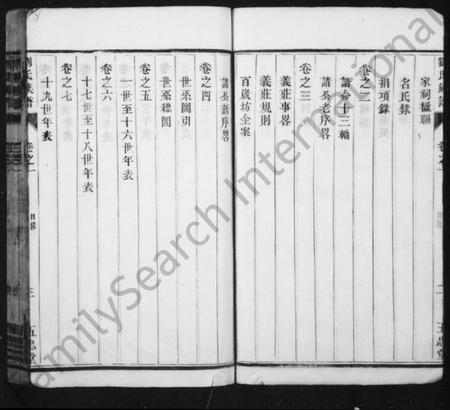 家祠楹聯
名氏錄
捐項錄
卷之二
誥命十三軸
諸公老序畧
卷之三
義莊事畧
義莊規則
百歲坊全案
諸公新序畧
卷之四
世系圖引
世系總圖
卷之五
一世至十六世年表
卷之六
十七世至十八世年表
卷之七
十九世年表
卷之一
目錄
三
五忠堂
FamilySearch International